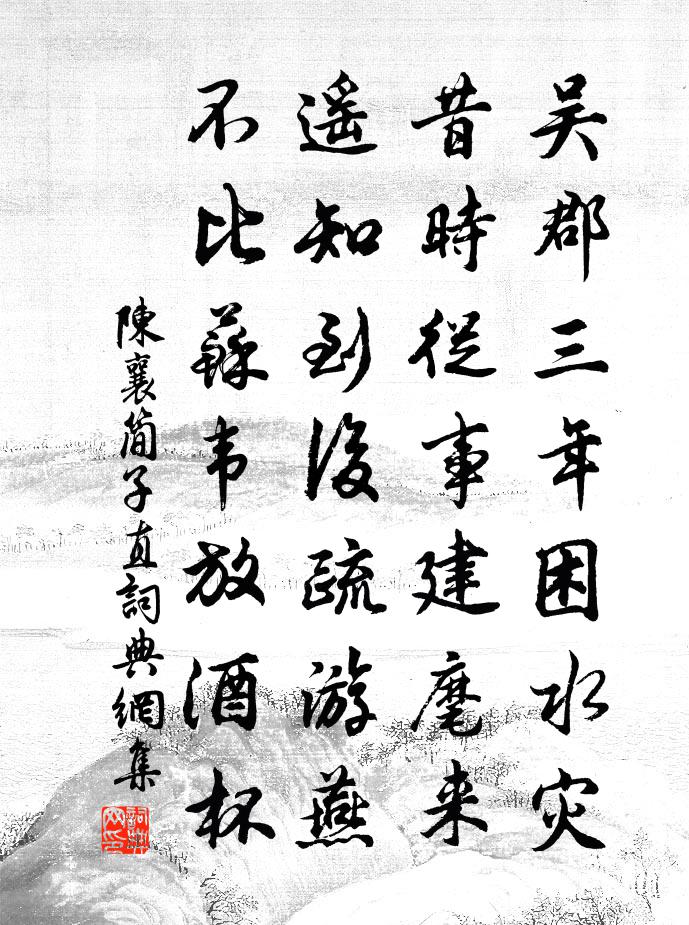 吴郡三年困水灾
昔時從事建麾来
遥知到後疏游燕
不比蘇韦放酒杯
陳襄簡子直詞典網集
詞典网印